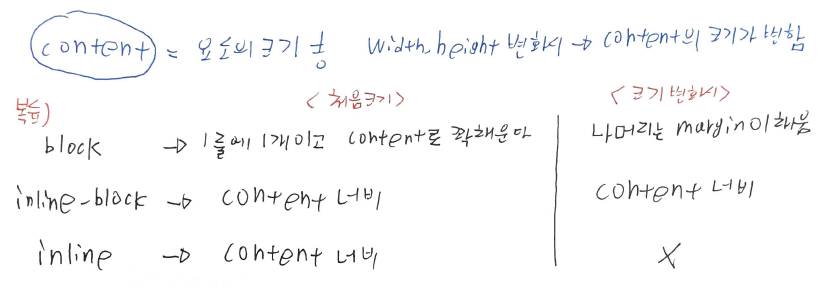 content = 요소의 크기 width, height 변화시 → content의 크기가 변함
<처음크기> <크기변화시>
block → 1줄에 1개이고 content로 꽉채운다 나머리는 margin이 채움
inline-block → content 너비 content 너비
inline → content 너비 X